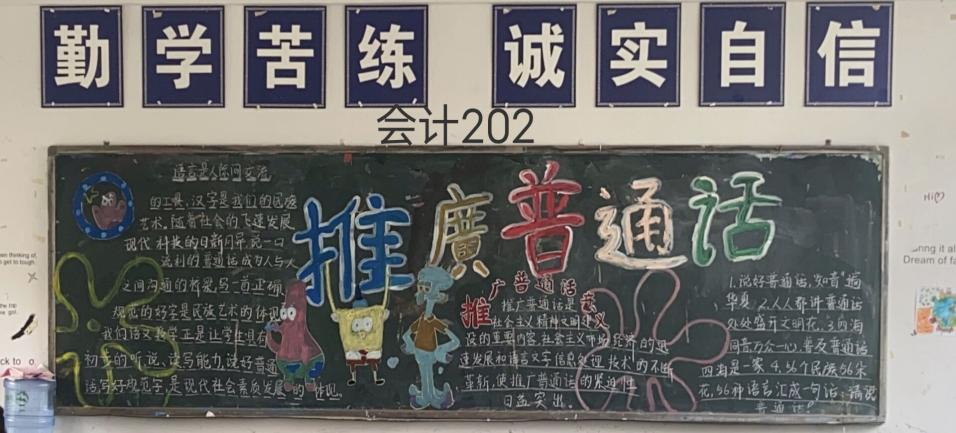 勤学苦练 诚实自信
会计202
推廣普通话
语言是人际间交流
的工具,汉字是我们的民族
艺术,随着社会的飞速发展
现代科技的日新月异,说一口
流利的普通话成为人与人
之间沟通的桥梁,写一首正确
规范的好字是民族艺术的体现
我们语文教学正是让学生具有
初步的听说、读写能力,说好普通
话写好规范字,是现代社会素质发展的体现。
推广普通话意义
推广普通话是
社会主义精神文明建
设的重要内容,社会主义市场经济的迅
速发展和语言文字信息处理技术的不断
革新,使推广普通话的紧迫性
日益突出。
1.说好普通话,知音遍
华夏 2.人人都讲普通话
处处盛开文明花,3.四海
同音万众一心,普及普通话
四海是一家 4.56个民族56朵
花,56种语言汇成一句话:请说
普通话!
Hi
Dream of fa